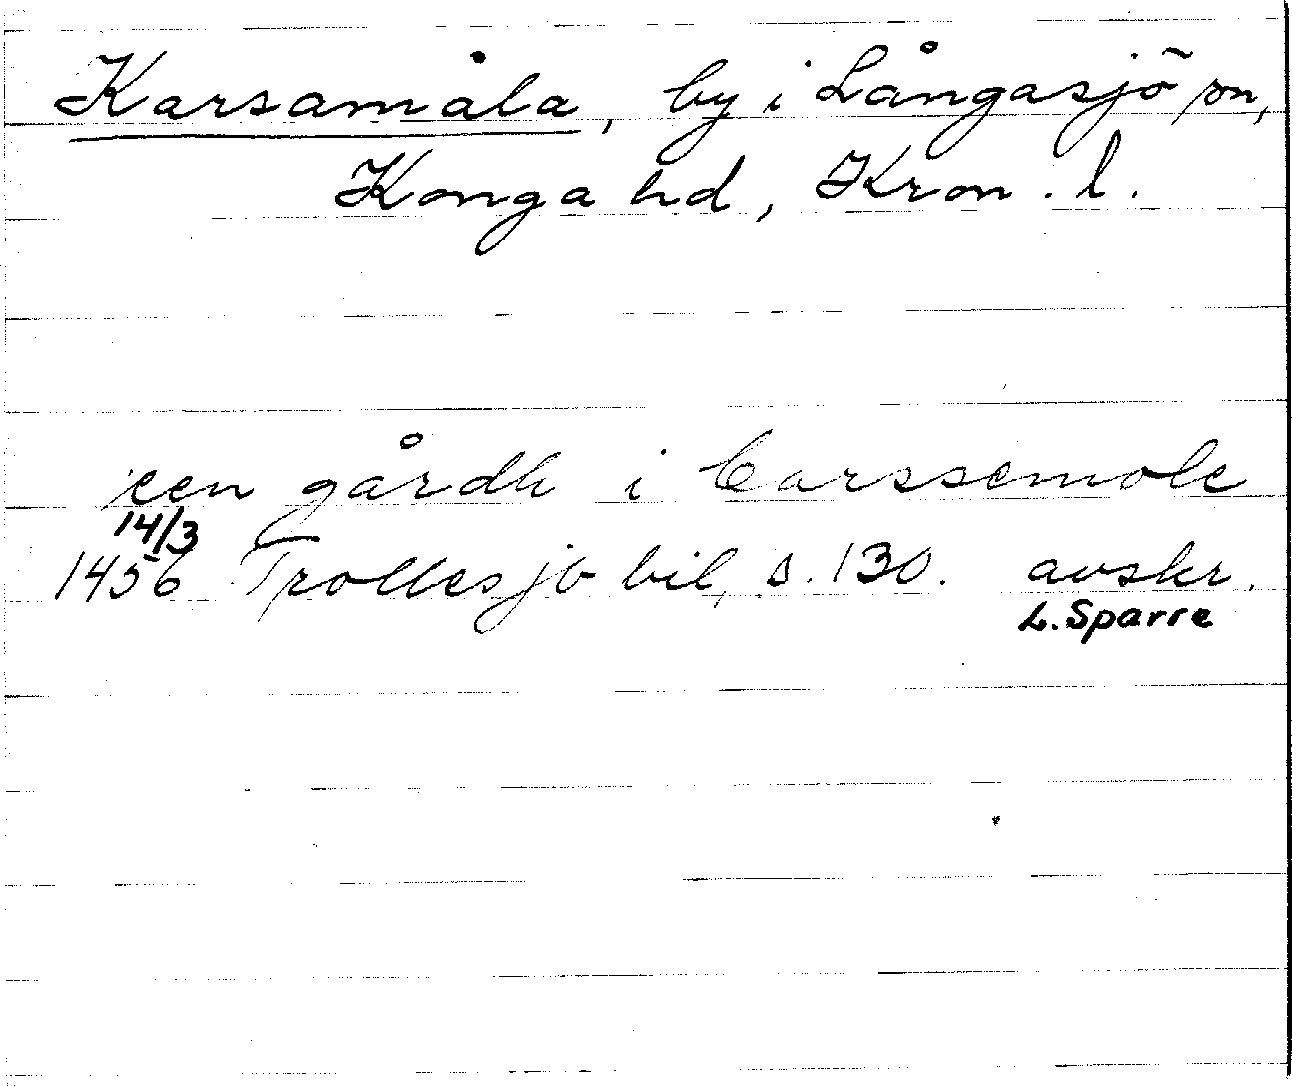 Karsamåla, by i Långasjö sn,
Konga hd, Kron. l.
een gårdh i Carssemole
14/3
1456 Trollesjb bil, s. 130. avskr.
L. Sparre